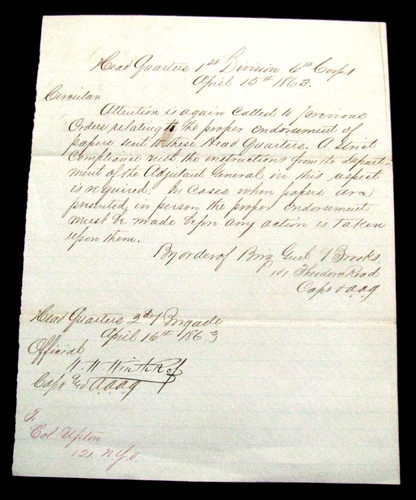 Head Quarters 1st Division 6th Corps
April 15th 1863.
Circular
Attention is again called to previous
Orders relating to the proper endorsement of
papers sent to these Head Quarters. A strict
compliance with the instructions from the depart-
ment of the Adjutant General in this respect
is required. In cases when papers are
presented in person the proper endorsement
must be made before any action is taken
upon them.
By order of Brig Genl T Brooks
Theodore Read
Capt & a.a.g
Head Quarters 2d Brigade
April 16th 1863
Official
Capt & a.a.a.g
To
Col Upton
121 N.Y.V